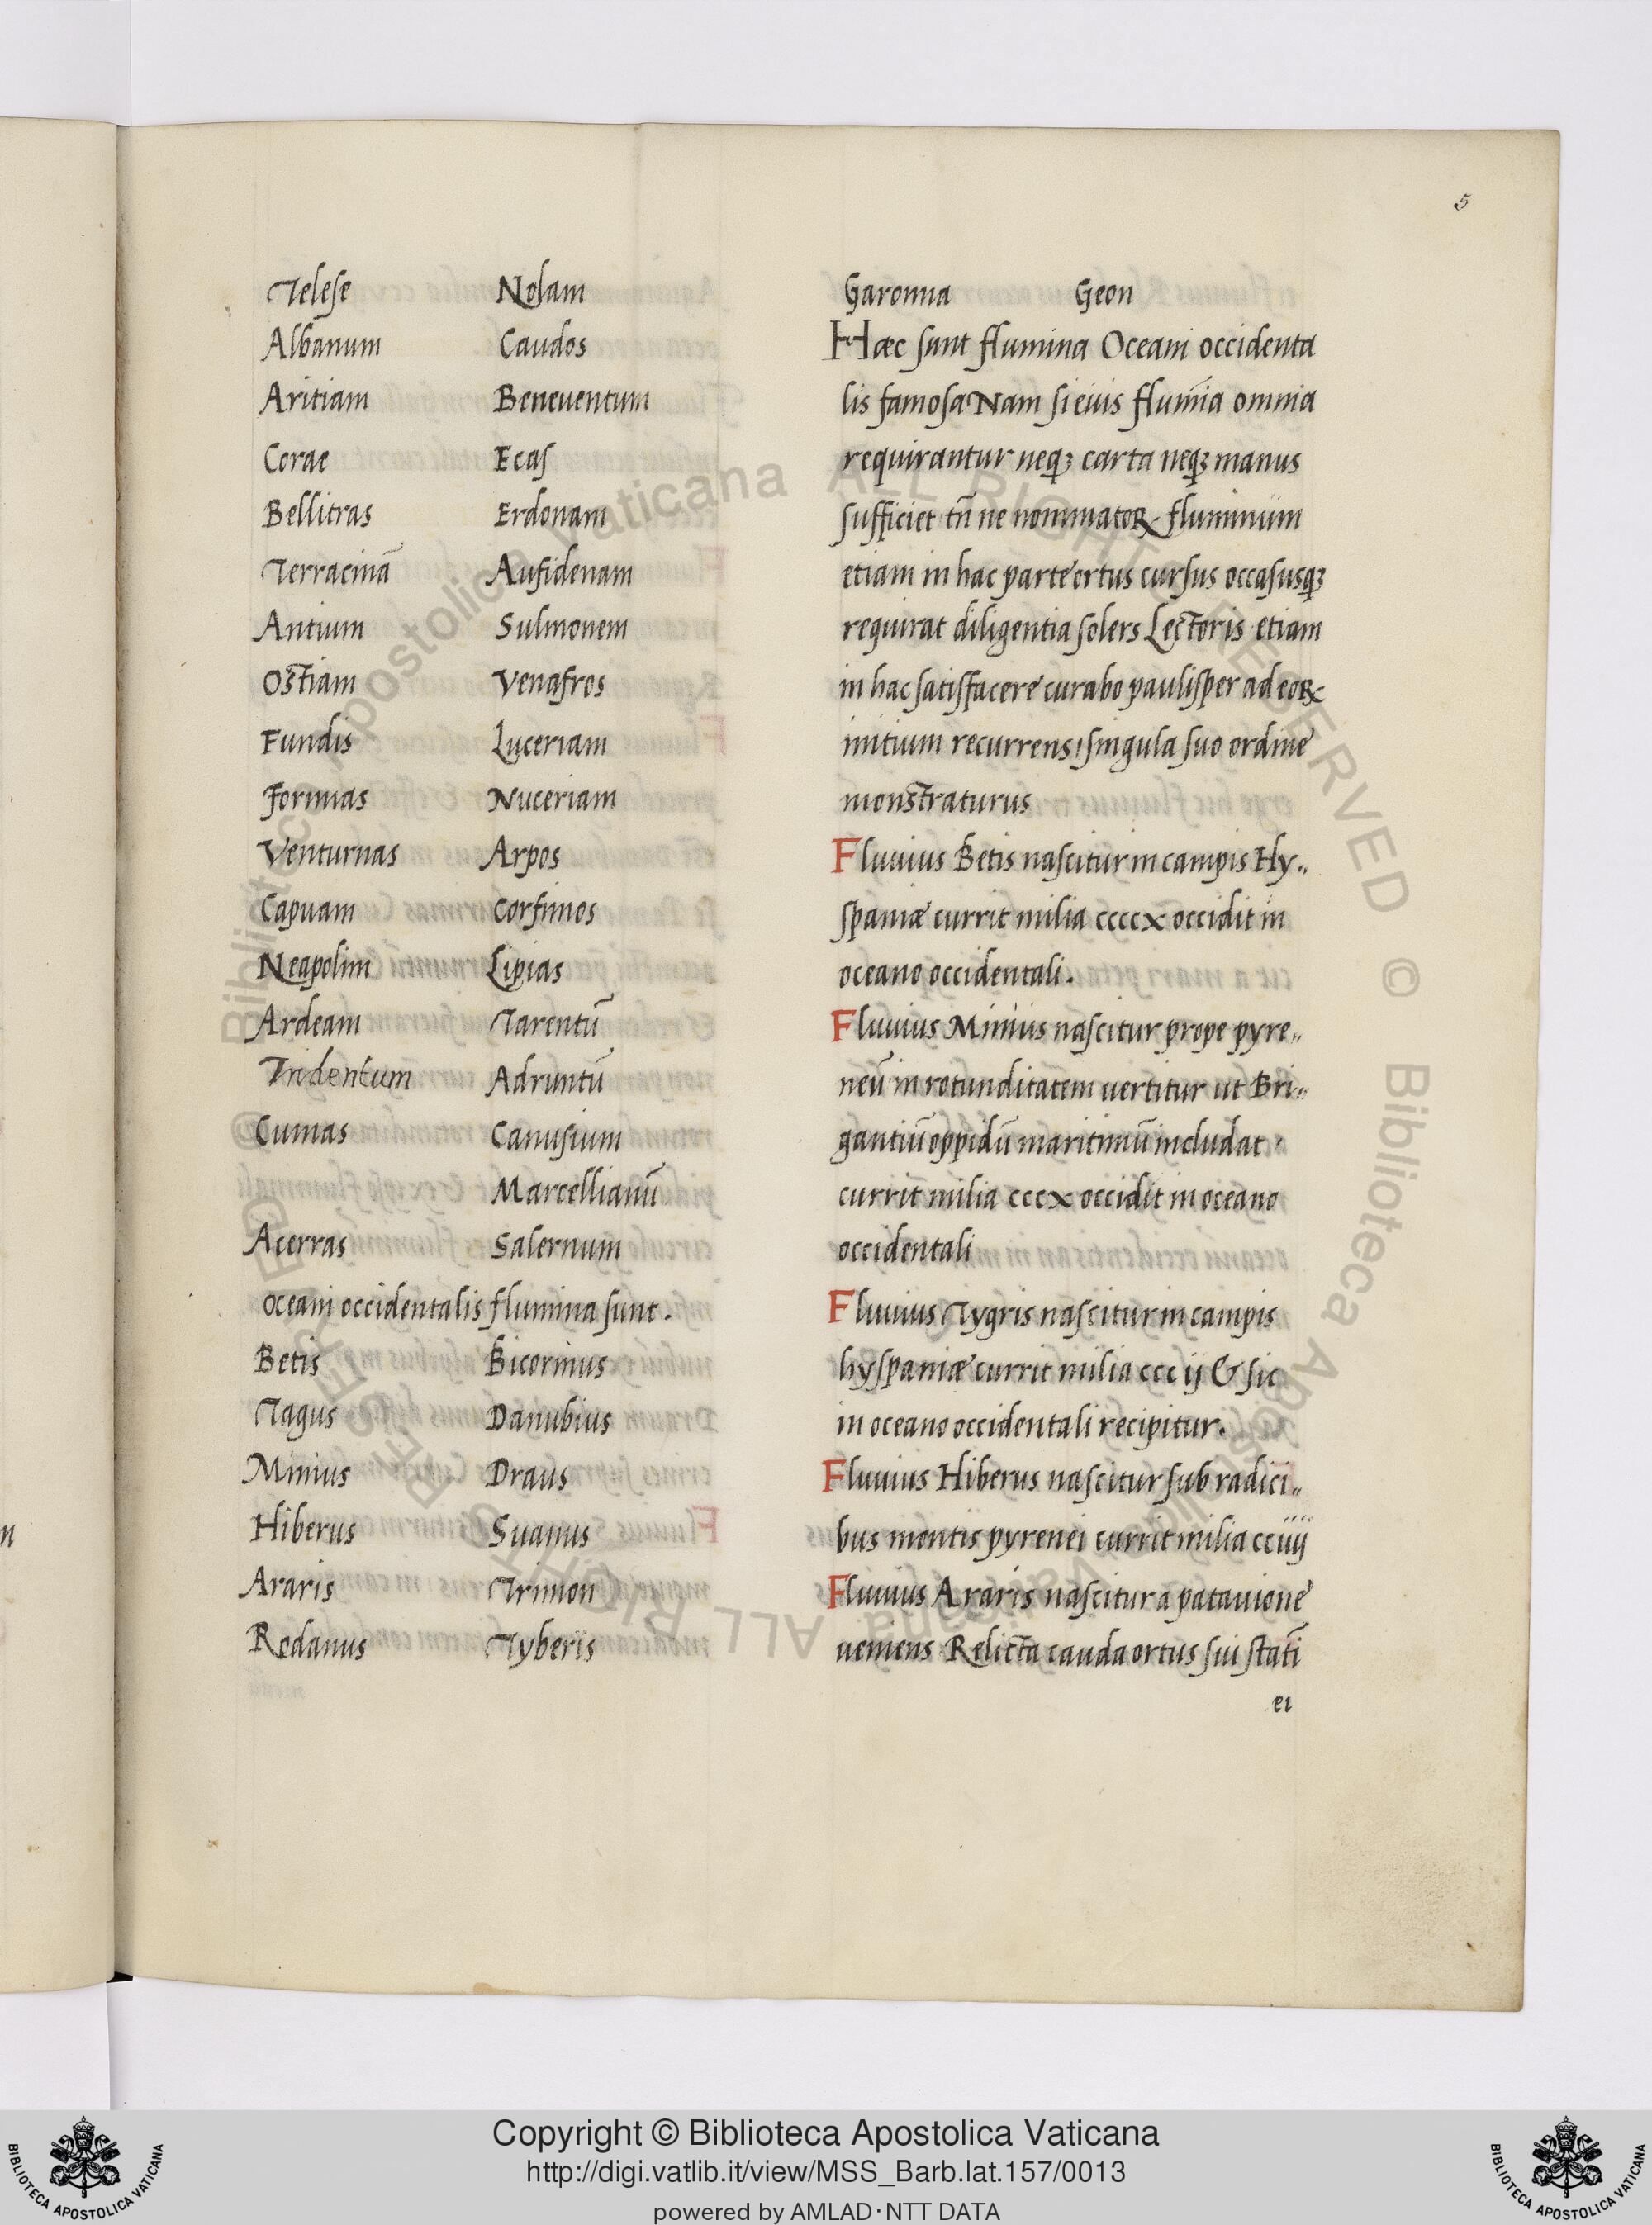 5
Telese Nolam
Albanum Caudos
Aritiam Beneuentum
Corae Ecas
Bellitras Erdonam
Terracinā Aufidenam
Antium Sulmonem
Ostiam Venafros
Fundis Luceriam
Formias Nuceriam
Venturnas Arpos
Capuam Corfinios
Neapolim Lipias
Ardeam Tarentū
Tridentum Adruntū
Cumas Canusium
Marcellianū
Acerras Salernum
Oceani occidentalis flumina sunt.
Betis Bicornius
Tagus Danubius
Minius Draus
Hiberus Suanus
Araris Trinion
Rodanus Tyberis
Garonna Geon
Hæc sunt flumina Oceani occidenta
lis famosa Nam si eius flumīa omnia
requirantur neqꝫ carta neqꝫ manus
sufficiet tn̄ ne nominatoꝝ fluminum
etiam in hac parte ortus cursus occasusqꝫ
requirat diligentia solers Lectoris etiam
in hac satisfacere curabo paulisper ad eoꝝ
initium recurrens! singula suo ordine
monstraturus
Fluuius Betis nascitur in campis Hy„
spaniæ currit milia ccccx occidit in
oceano occidentali.
Fluuius Minius nascitur prope pyre„
neū in rotunditatem uertitur ut Bri„
gantiū oppidū maritimū includat
currit milia cccx occidit in oceano
occidentali
Fluuius Tygris nascitur in campis
hyspaniæ currit milia ccc ij & sic
in oceano occidentali recipitur.
Fluuius Hiberus nascitur sub radici„
bus montis pyrenei currit milia cciiij
Fluuius Araris nascitur a patauione
ueniens Relicta cauda ortus sui statī
ei
n
© Biblioteca Apostolica Vaticana ALL RIGHTS RESERVED
Copyright © Biblioteca Apostolica Vaticana
http://digi.vatlib.it/view/MSS_Barb.lat.157/0013
powered by AMLAD·NTT DATA
BIBLIOTECA APOSTOLICA VATICANA
BIBLIOTECA APOSTOLICA VATICANA